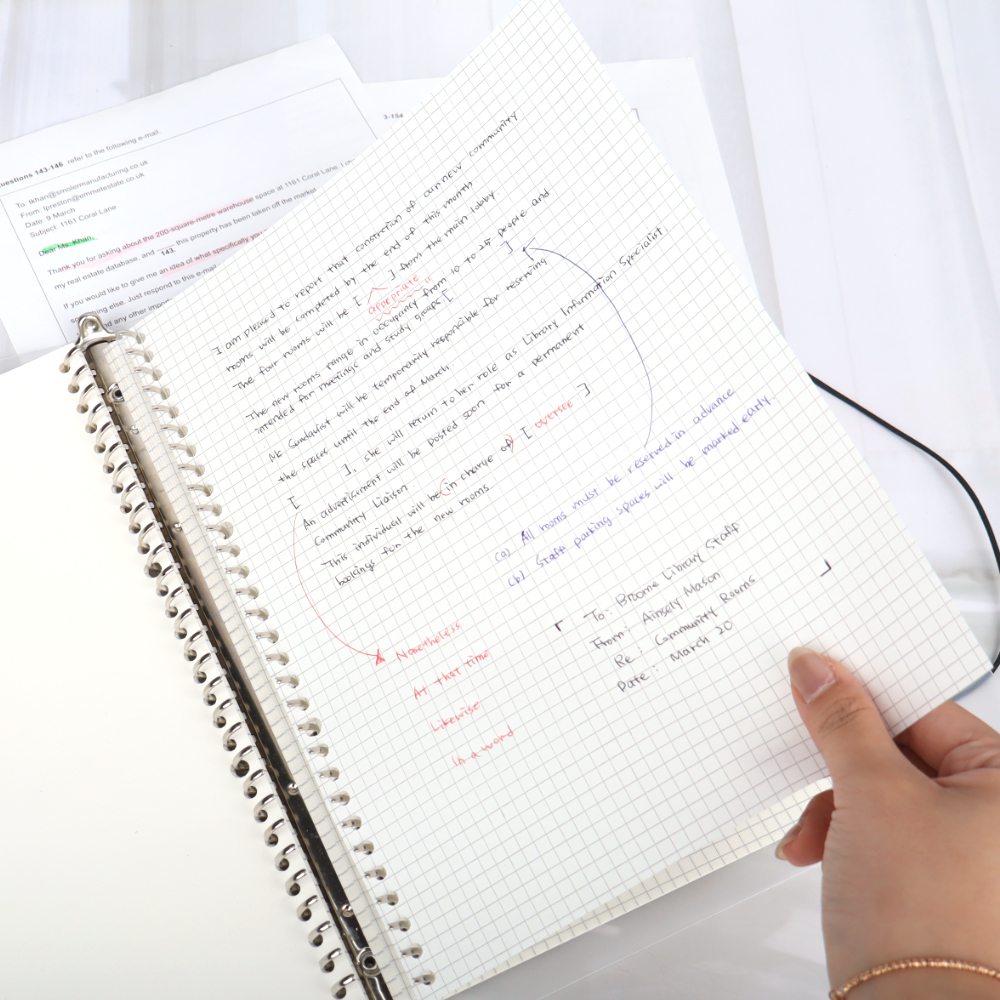 Questions 143-146 refer to the following e-mail
To: tkhan@smolermanufacturing.co.uk
From: lpreston@emmelestate.co.uk
Date: 9 March
Subject: 1161 Coral Lane
Dear Ms. Khan,
Thank you for asking about the 200-square-metre warehouse space at 1161 Coral Lane,
my real estate database, and
143.
this property has been taken off the market
If you would like to give me an idea of what specifically
something else. Just respond to this e-mail
and any other
I am pleased to report that constrction of our new community
rooms will be completed by the end of this month
The four rooms will be [ ] from the main lobby
appropriate
The new rooms range in occupancy from 10 to 25 people and
intended for meetings and study groups [ ]
Ms Cundquist will be temporarily responsible for reserving
the spaces until the end of March
[ ], she will return to her role as Library Information Specialist
An advertisement will be posted soon for a permanent
Community Liaison
This individual will be in charge of [ oversee ]
bookings for the new rooms
(a) All rooms must be reserved in advance
(b) Staff parking spaces will be marked early
Nonetheless
At that time
Likewise
In a word
To : Broome Library Staff
From : Ainsely Mason
Re : Community Rooms
Date : March 20